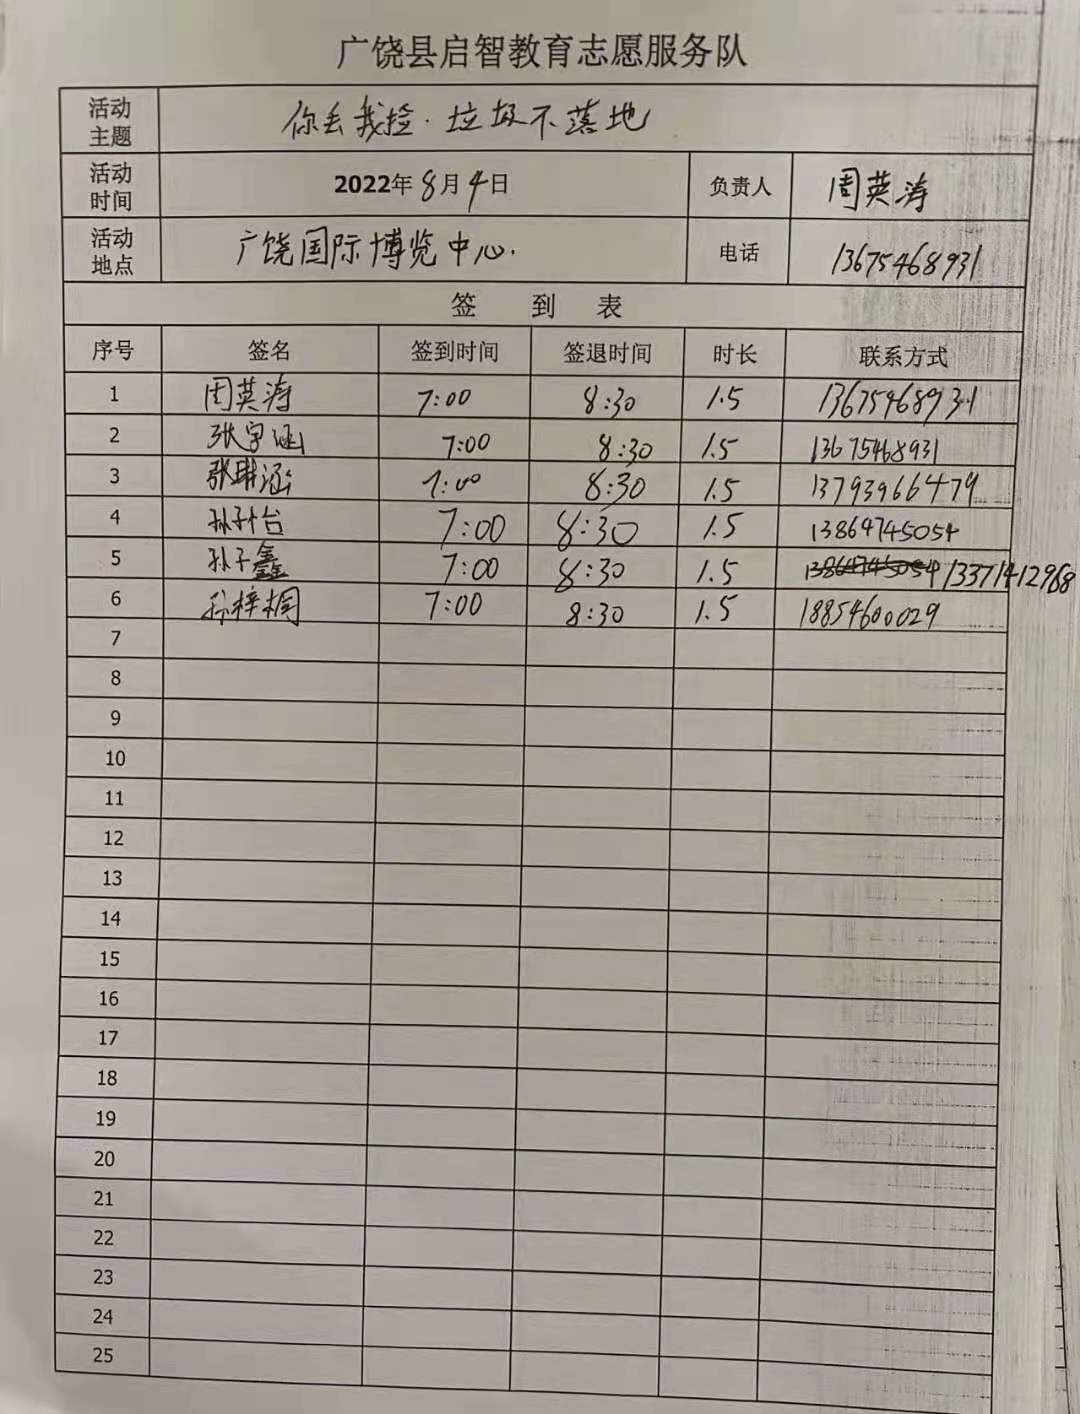 广饶县启智教育志愿服务队
活动主题 你丢我捡·垃圾不落地
活动时间 2022年8月4日 负责人 周英涛
活动地点 广饶国际博览中心. 电话 13675468931
签 到 表
序号 签名 签到时间 签退时间 时长 联系方式
1 周英涛 7:00 8:30 1.5 13675468931
2 张宇涵 7:00 8:30 1.5 13675468931
3 张琳涵 7:00 8:30 1.5 13793966479
4 孙子怡 7:00 8:30 1.5 13864745054
5 孙子鑫 7:00 8:30 1.5 13864745054 13371412968
6 孙梓桐 7:00 8:30 1.5 18854600029
7
8
9
10
11
12
13
14
15
16
17
18
19
20
21
22
23
24
25